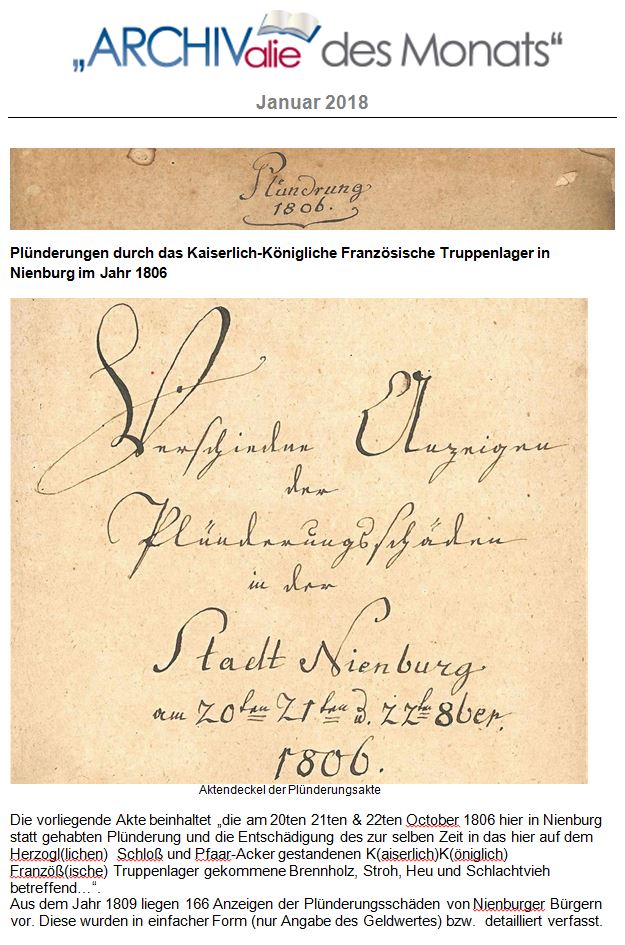 „ARCHIValie des Monats“
Januar 2018
Plündrung
1806.
Plünderungen durch das Kaiserlich-Königliche Französische Truppenlager in
Nienburg im Jahr 1806
Verschiedne Anzeigen
der
Plünderungsschäden
in der
Stadt Nienburg
am 20ten 21ten u. 22ten 8ber.
1806.
Aktendeckel der Plünderungsakte
Die vorliegende Akte beinhaltet „die am 20ten 21ten & 22ten October 1806 hier in Nienburg
statt gehabten Plünderung und die Entschädigung des zur selben Zeit in das hier auf dem
Herzogl(lichen) Schloß und Pfaar-Acker gestandenen K(aiserlich)K(öniglich)
Französ(ische) Truppenlager gekommene Brennholz, Stroh, Heu und Schlachtvieh
betreffend…“.
Aus dem Jahr 1809 liegen 166 Anzeigen der Plünderungsschäden von Nienburger Bürgern
vor. Diese wurden in einfacher Form (nur Angabe des Geldwertes) bzw. detailliert verfasst.